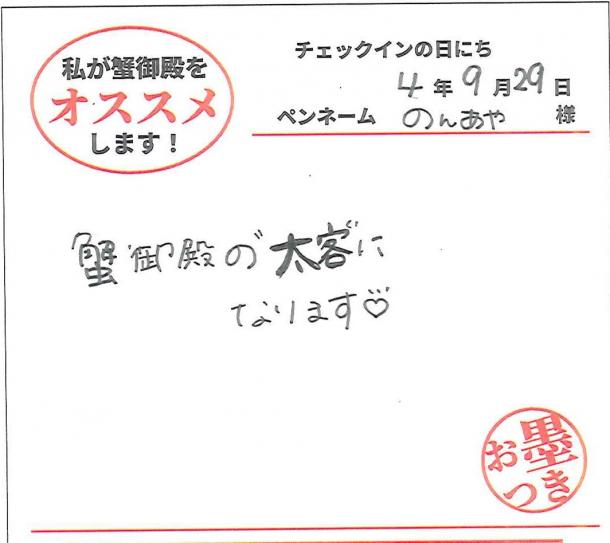 私が蟹御殿を
オススメ
します！
チェックインの日にち
4年9月29日
ペンネーム のんあや 様
蟹御殿の太客に
なります♡
お墨
つき